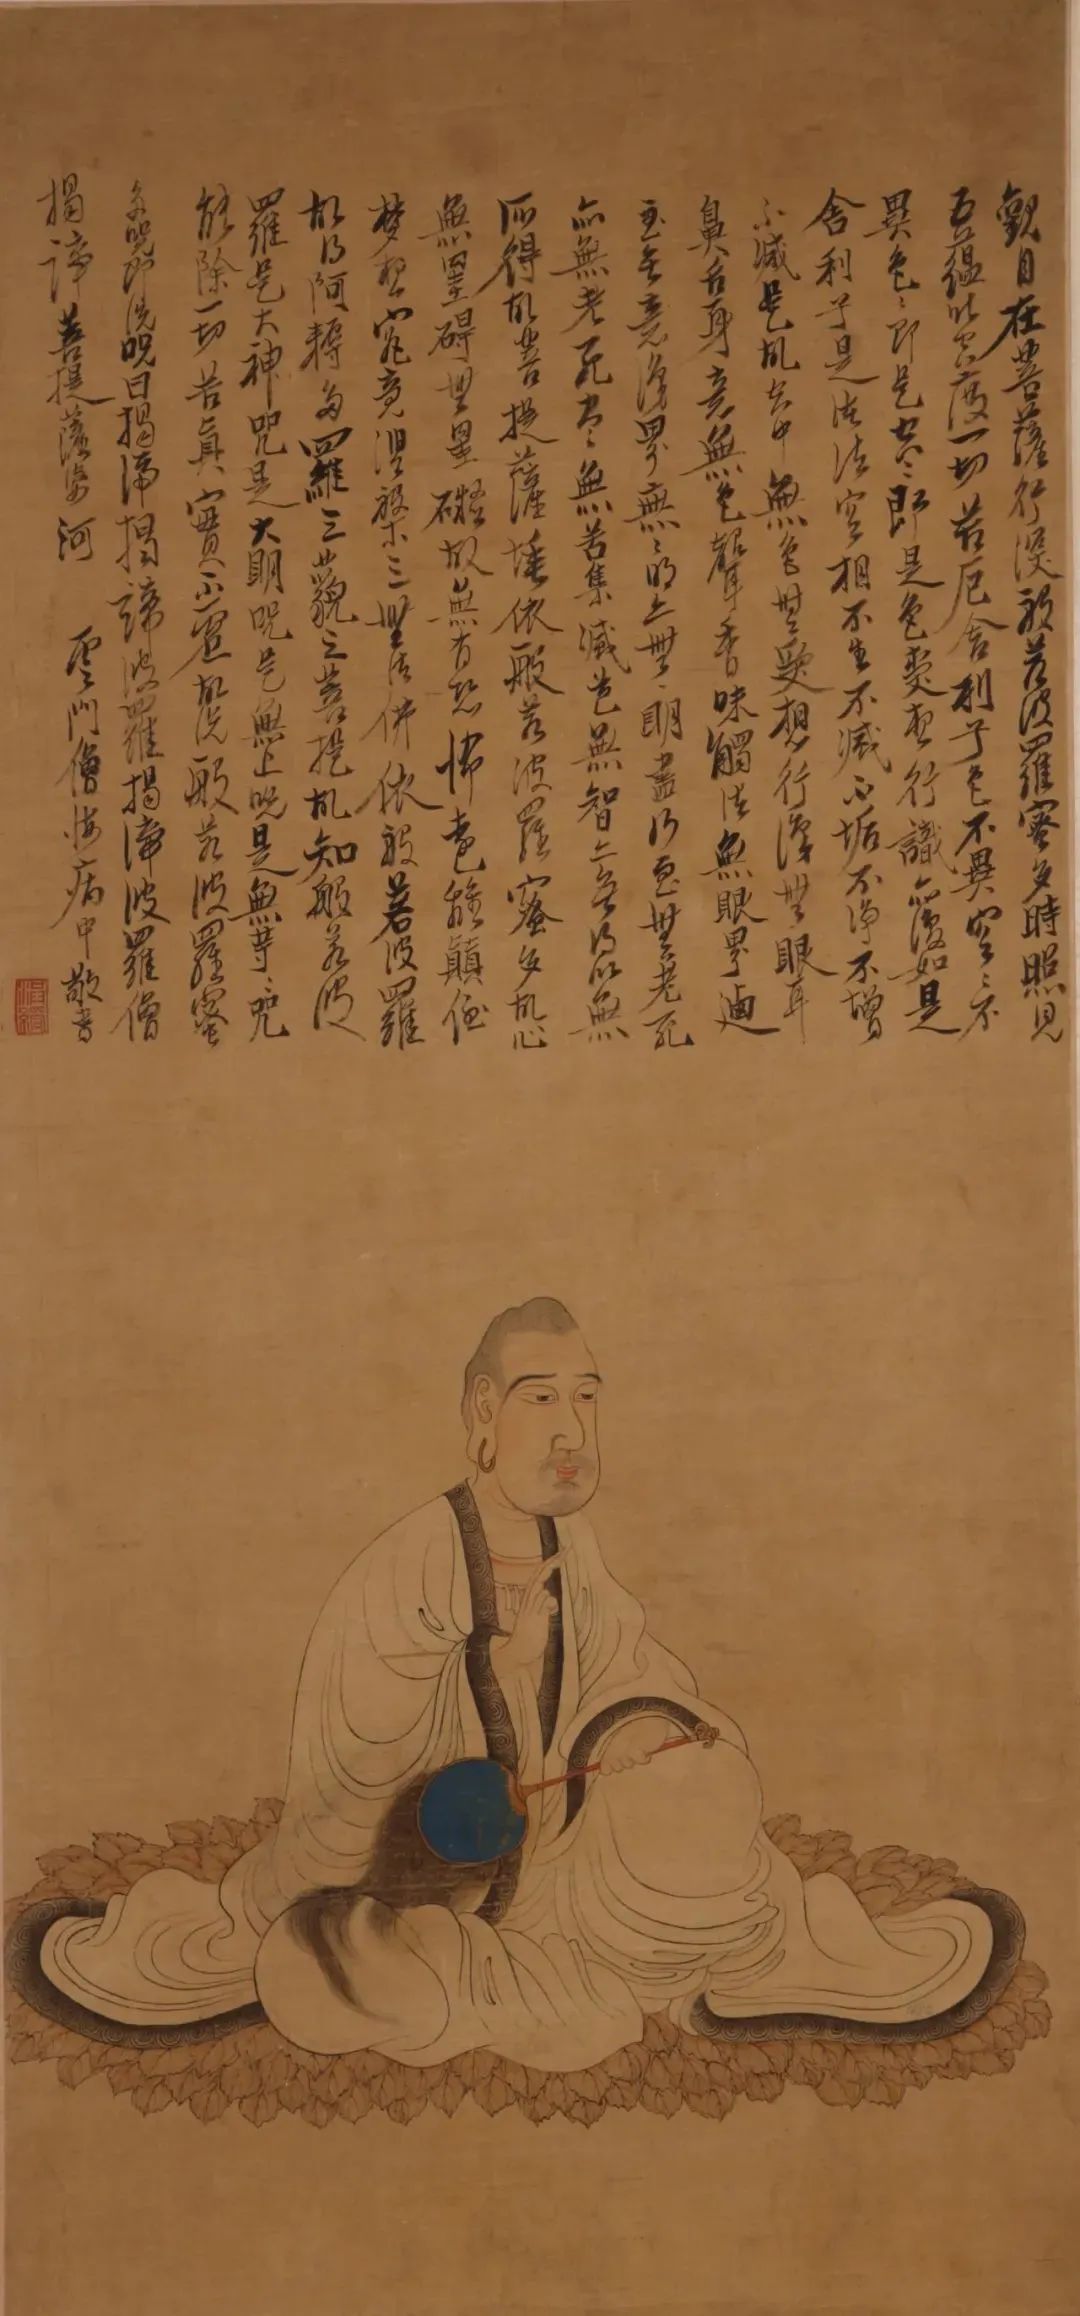 觀自在菩薩行深般若波羅蜜多時照見
五蘊皆空度一切苦厄舍利子色不異空〻不
異色〻即是空〻即是色受想行識亦復如是
舍利子是諸法空相不生不滅不垢不淨不增
不減是故空中無色無受想行識無眼耳
鼻舌身意無色聲香味觸法無眼界迺
至無意識界無〻明亦無〻明盡乃至無老死
亦無老死盡〻無苦集滅道無智亦無得以無
所得故菩提薩埵依般若波羅蜜多故心
無罣碍無罣礙故無有恐怖遠離顛倒
夢想究竟涅槃三世諸佛依般若波羅
故得阿耨多羅三藐三菩提故知般若波
羅是大神咒是大明咒是無上咒是無等〻咒
能除一切苦真實不虛故說般若波羅蜜
多咒即說咒曰揭諦揭諦波羅揭諦波羅僧
揭諦菩提薩婆河 雲門僧悔病中敬書